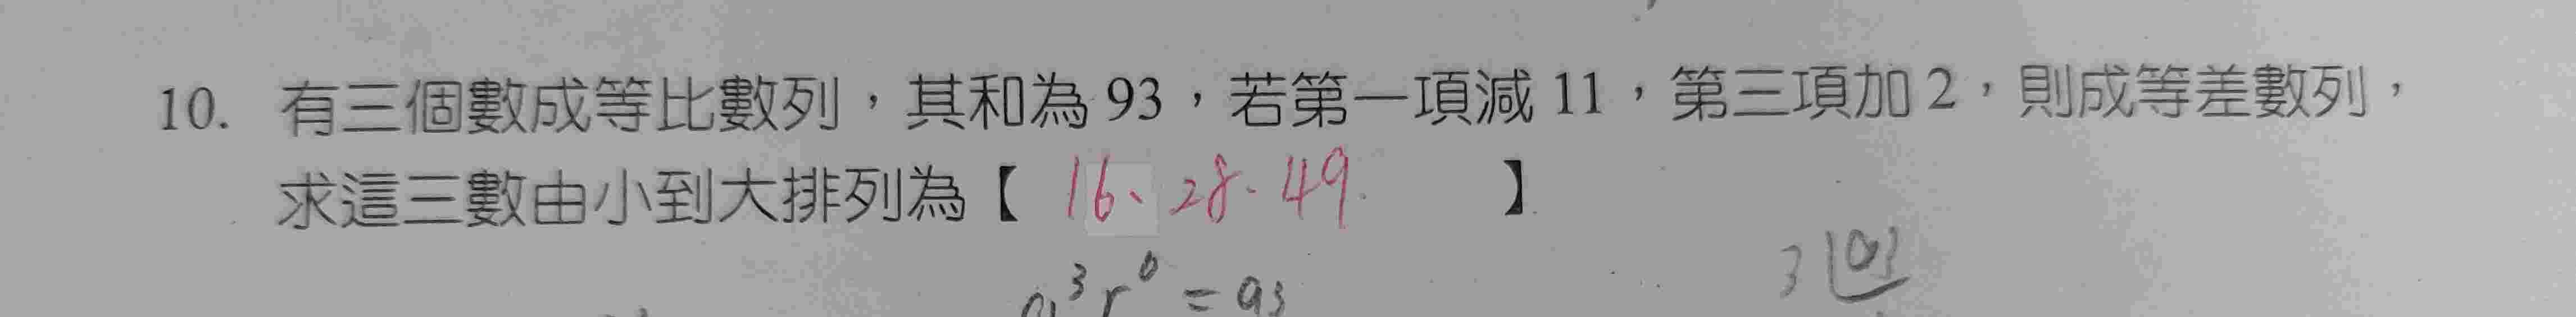 10. 有三個數成等比數列，其和為 93，若第一項減 11，第三項加 2，則成等差數列，
求這三數由小到大排列為【 16、28、49. 】
3
a³r⁰ = 93